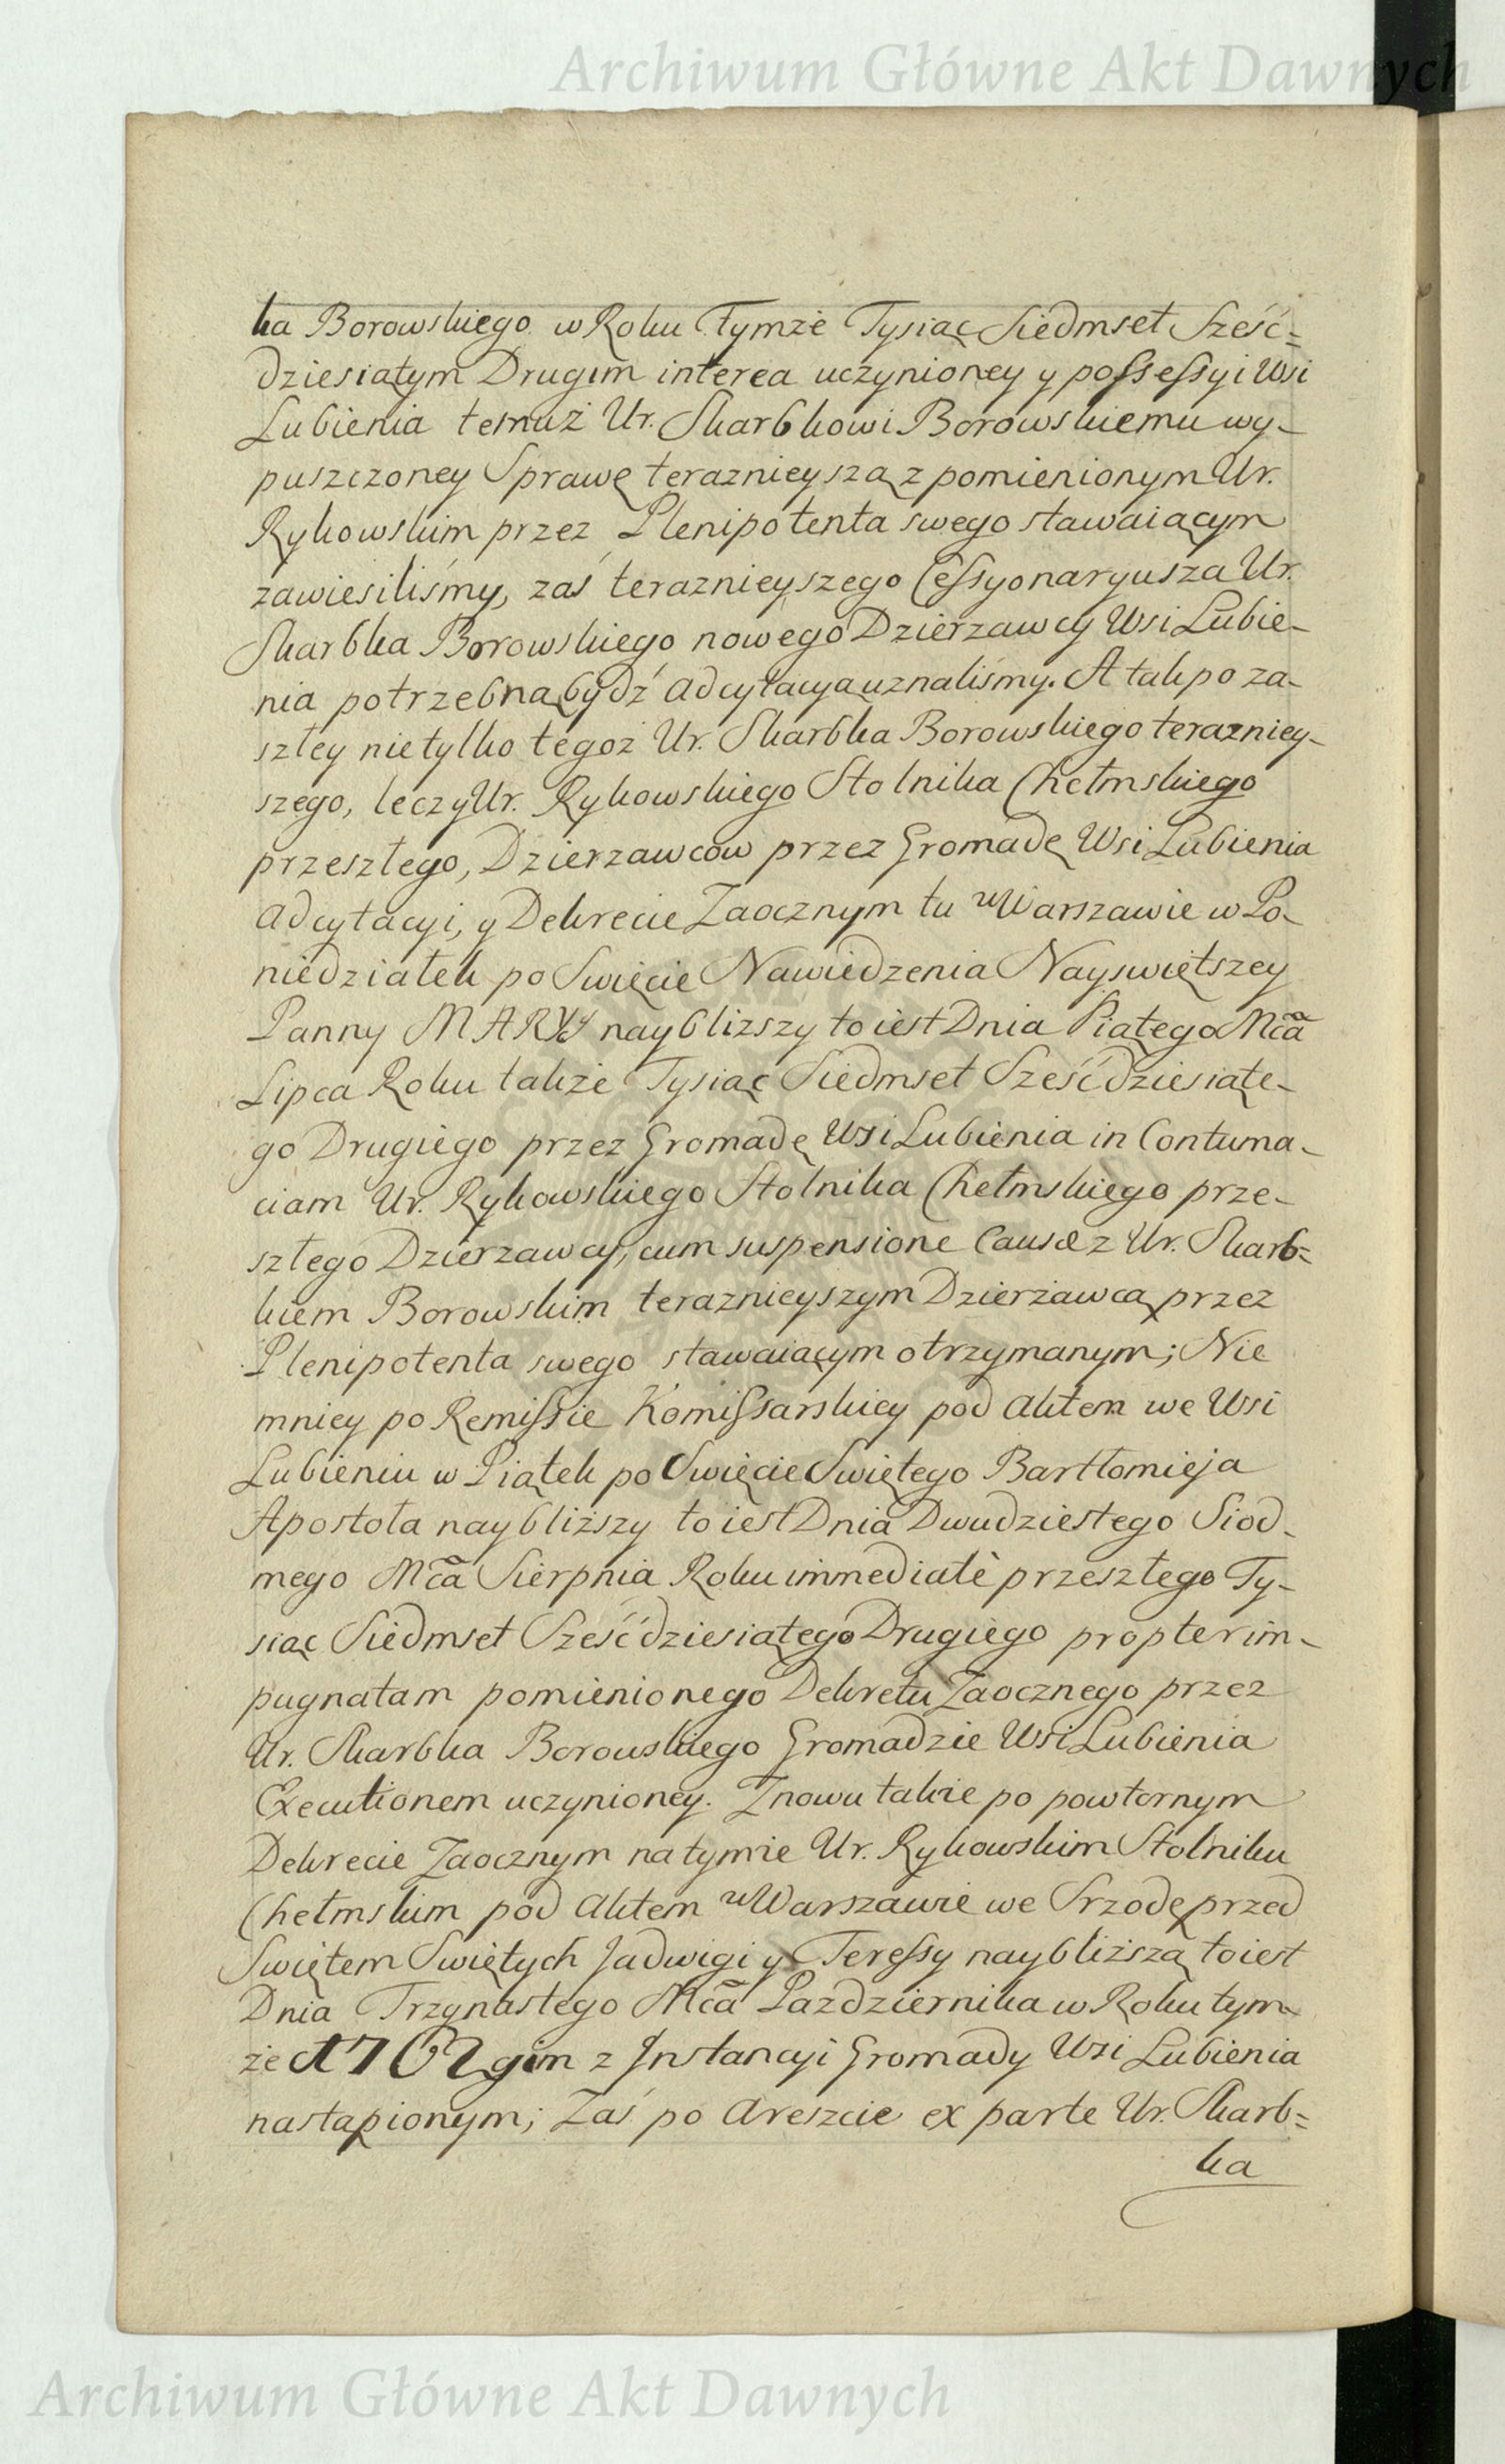 Archiwum Główne Akt Dawnych
ka Borowskiego w Roku Tymże Tysiąc Siedmset Sześć=
dziesiątym Drugim interea uczynioney y possessyi Wsi
Lubienia temuż Ur. Skarbkowi Borowskiemu wy-
puszczoney Sprawę teraznieyszą z pomienionym Ur.
Rykowskim przez Plenipotenta swego stawaiącym
zawiesiliśmy, zaś teraznieyszego Cessyonaryusza Ur.
Skarbka Borowskiego nowego Dzierzawcy Wsi Lubie-
nia potrzebną bydź adcytacyą uznaliśmy. A tak po za-
szłey nietylko tegoż Ur. Skarbka Borowskiego terazniey-
szego, lecz y Ur. Rykowskiego Stolnika Chełmskiego
przeszłego, Dzierzawcow przez Gromadę Wsi Lubienia
adcytacyi, y Dekrecie Zaocznym tu w Warszawie w Po-
niedziałek po Swięcie Nawiedzenia Nayswiętszey
Panny MARYI naybliższy to iest Dnia Piątego Mca
Lipca Roku także Tysiąc Siedmset Sześćdziesiąte-
go Drugiego przez Gromadę Wsi Lubienia in Contuma-
ciam Ur. Rykowskiego Stolnika Chełmskiego prze-
szłego Dzierzawcy, cum suspensione Causæ z Ur. Skarb=
kiem Borowskim teraznieyszym Dzierżawcą przez
Plenipotenta swego stawaiącym otrzymanym; Nie
mniey po Remissie Komissarskiey pod Aktem we Wsi
Lubieniu w Piątek po Swięcie Swiętego Bartłomieja
Apostoła naybliższy to iest Dnia Dwudziestego Siod-
mego Mca Sierpnia Roku immediatè przeszłego Ty-
siąc Siedmset Sześćdziesiątego Drugiego propter im-
pugnatam pomienionego Dekretu Zaocznego przez
Ur. Skarbka Borowskiego Gromadzie Wsi Lubienia
Executionem uczynioney. Znowu także po powtornym
Dekrecie Zaocznym na tymże Ur. Rykowskim Stolniku
Chełmskim pod Aktem w Warszawie we Srzodę przed
Swiętem Swiętych Jadwigi y Teressy naybliższą to iest
Dnia Trzynastego Mca Pazdziernika w Roku tym-
że 1762gim z Instancyi Gromady Wsi Lubienia
nastąpionym; Zaś po Areszcie ex parte Ur. Skarb=
ka
Archiwum Główne Akt Dawnych